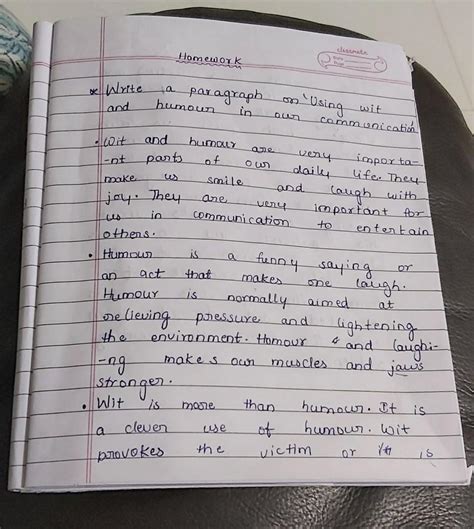 Homework
classmate
Date
Page
* Write a paragraph on 'Using wit
and humour in our communication'
• Wit and humour are very importa-
-nt parts of our daily life. They
make us smile and laugh with
joy. They are very important for
us in communication to entertain
others.
• Humour is a funny saying or
an act that makes one laugh.
Humour is normally aimed at
relieving pressure and lightening
the environment. Homour and laughi-
-ng makes our muscles and jaws
stronger.
• Wit is more than humour. It is
a clever use of humour. Wit
provokes the victim or is